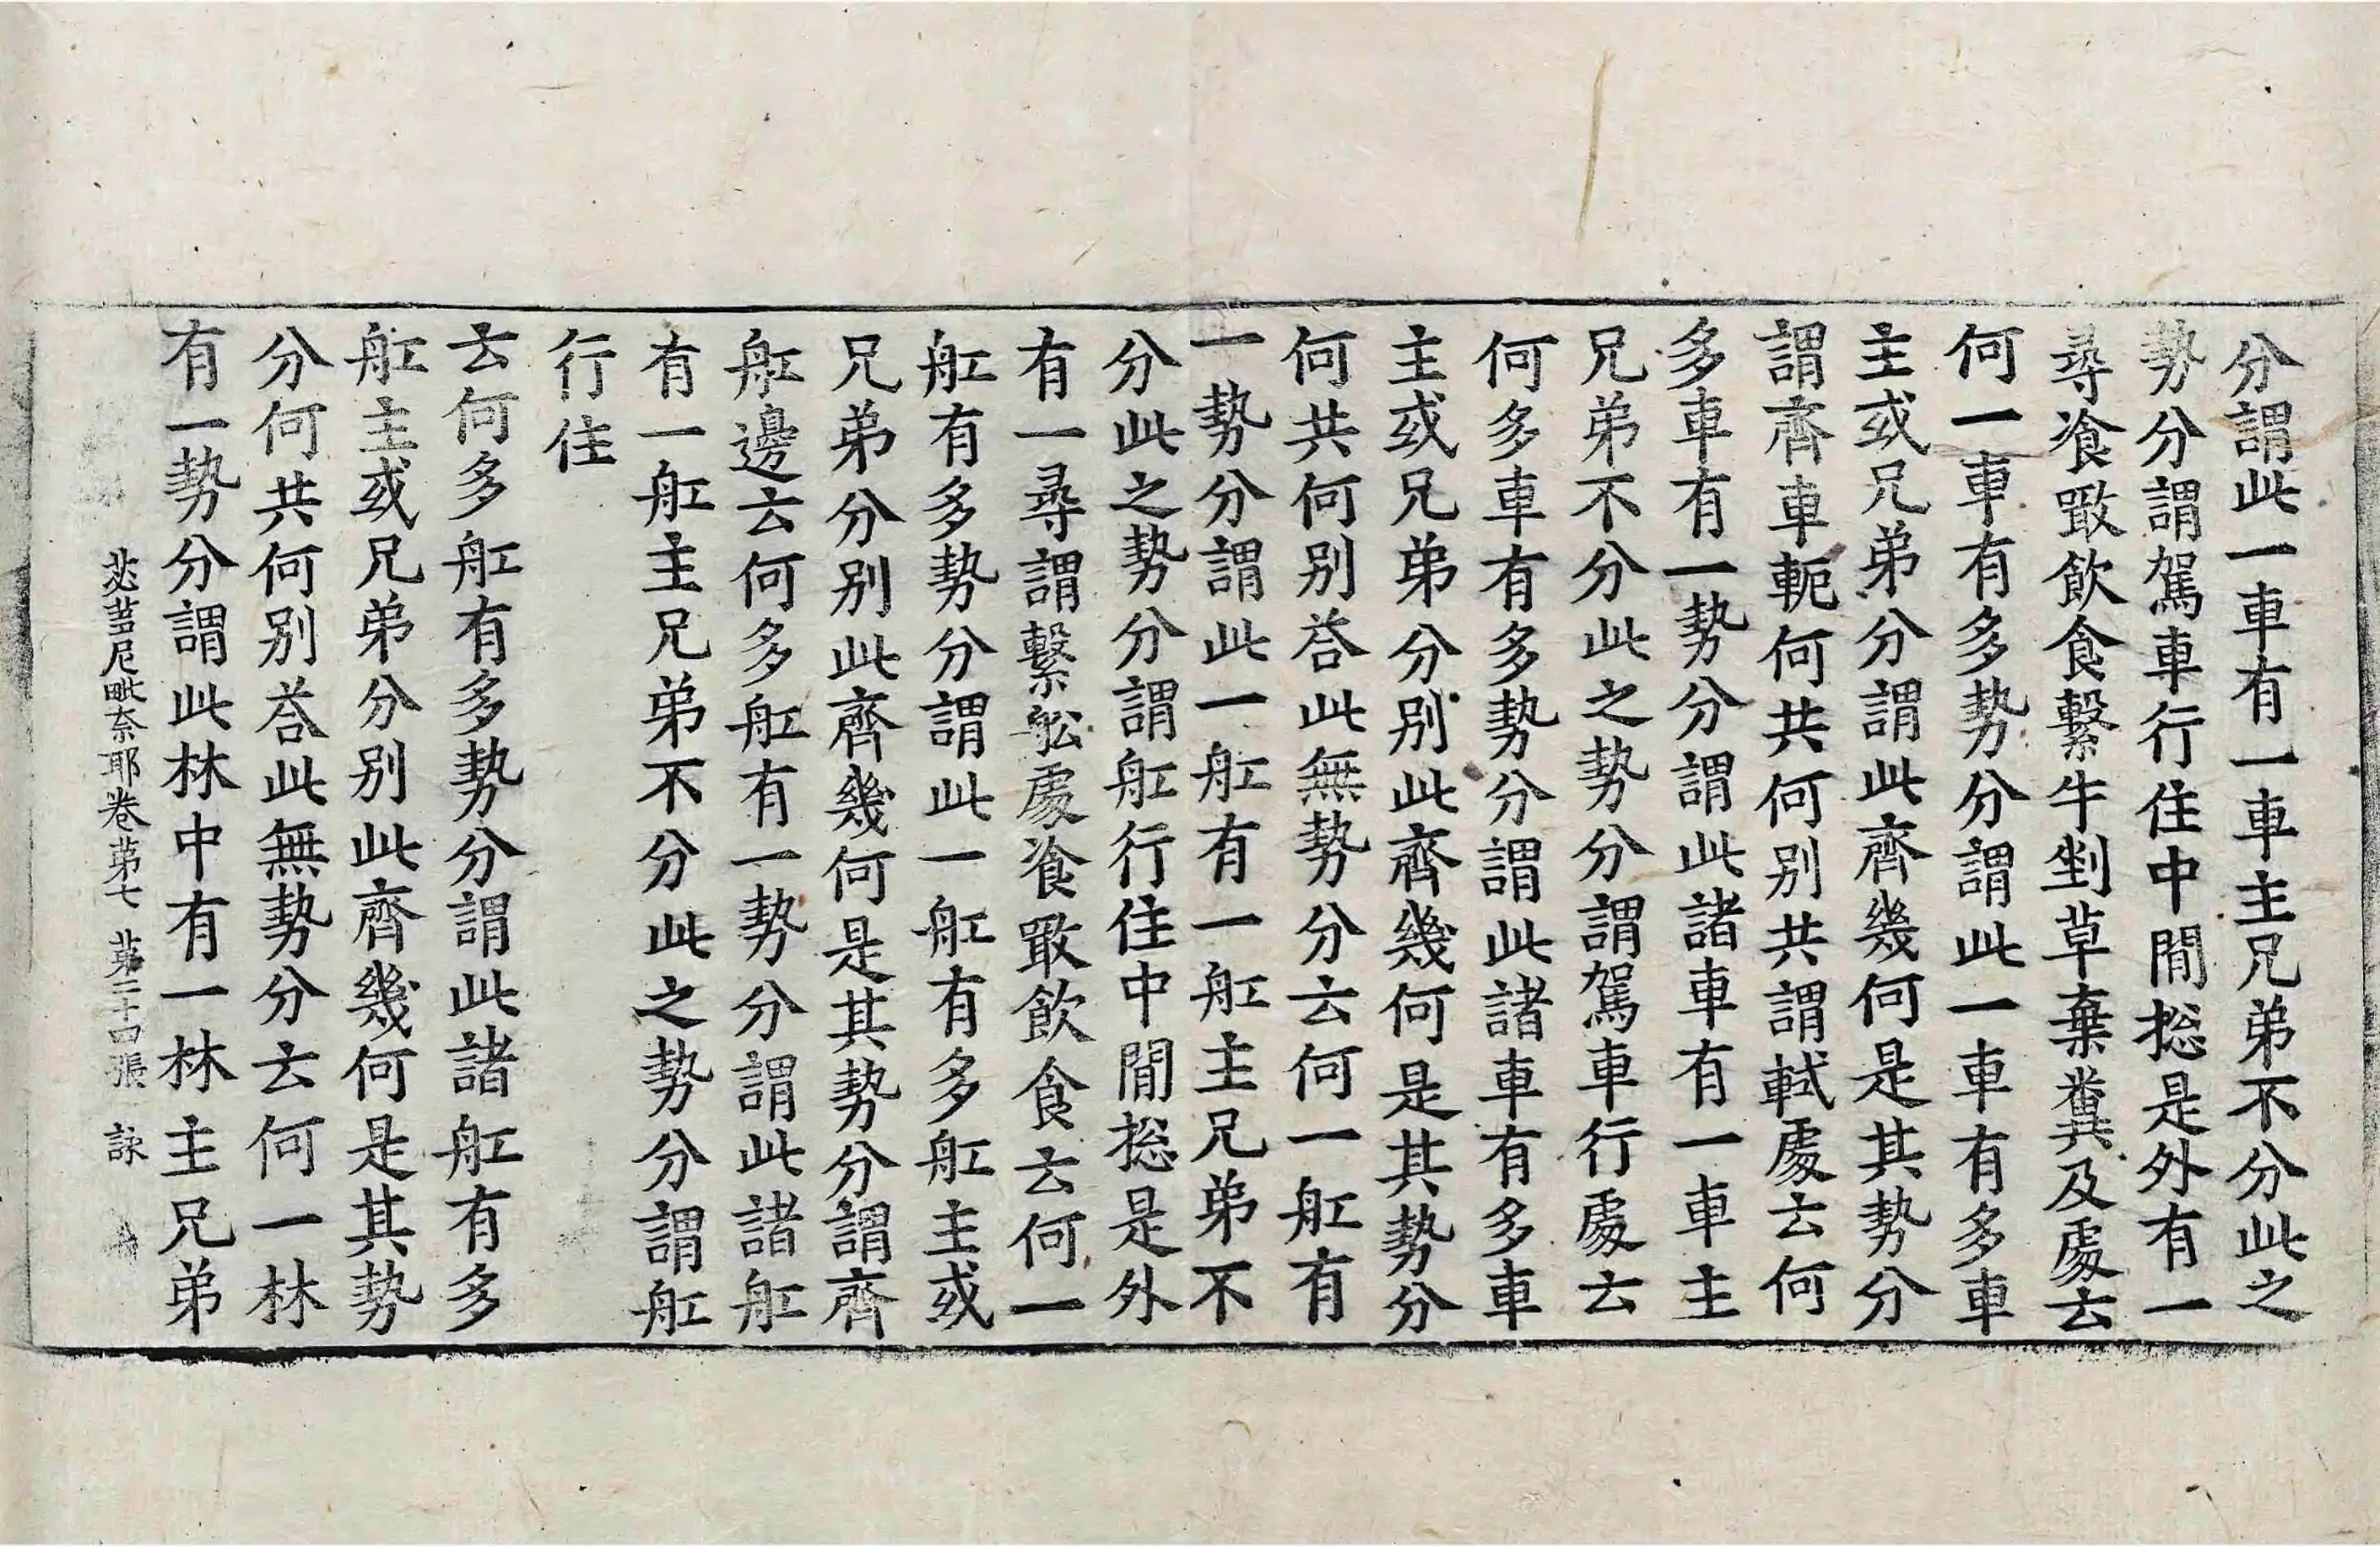 分謂此一車有一車主兄弟不分此之
勢分謂駕車行住中閒捴是外有一
尋飡噉飲食繫牛剉草棄糞及處云
何一車有多勢分謂此一車有多車
主或兄弟分謂此齊幾何是其勢分
謂齊車軛何共何别共謂軾處云何
多車有一勢分謂此諸車有一車主
兄弟不分此之勢分謂駕車行處云
何多車有多勢分謂此諸車有多車
主或兄弟分别此齊幾何是其勢分
何共何别荅此無勢分云何一舡有
一勢分謂此一舡有一舡主兄弟不
分此之勢分謂舡行住中閒捴是外
有一尋謂繫舩處飡噉飲食云何一
舡有多勢分謂此一舡有多舡主或
兄弟分别此齊幾何是其勢分謂齊
舡邊云何多舡有一勢分謂此諸舡
有一舡主兄弟不分此之勢分謂舡
行住
云何多舡有多勢分謂此諸舡有多
舡主或兄弟分别此齊幾何是其勢
分何共何别荅此無勢分云何一林
有一勢分謂此林中有一林主兄弟
苾芻尼毗奈耶卷苐七 苐二十四張 詠